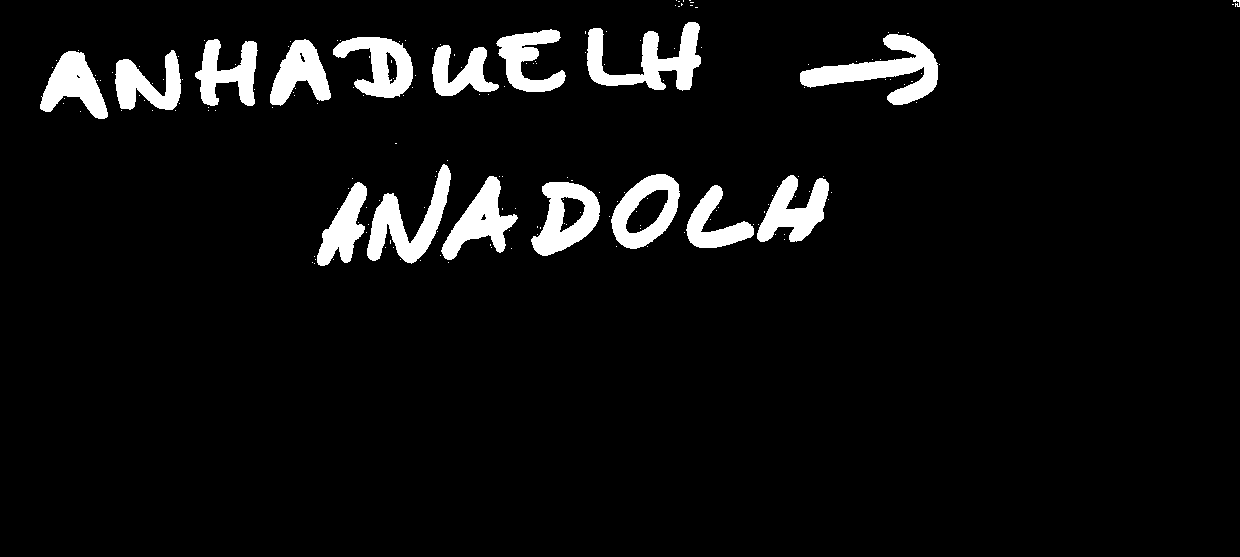 ANHADUELH →
ANADOLH